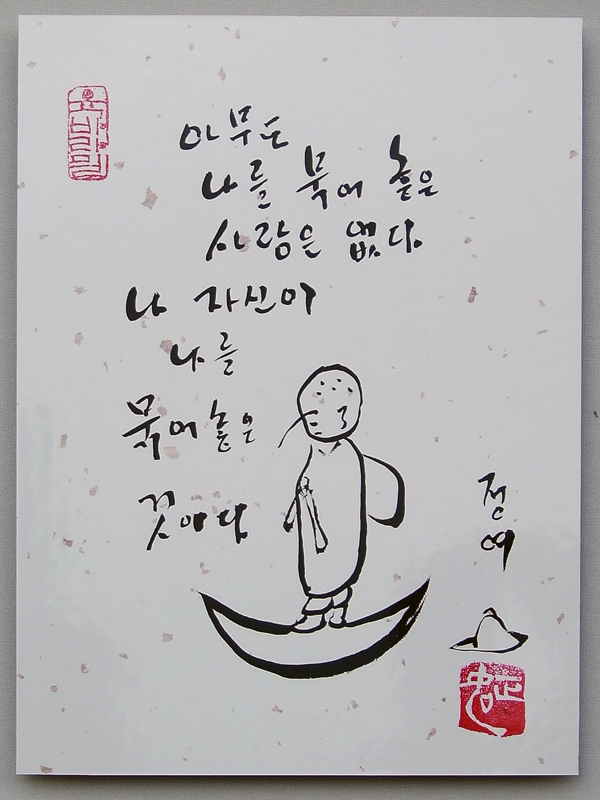 아무도
나를 묶어 놓은
사람은 없다
나 자신이
나를
묶어 놓은
것이다
정여